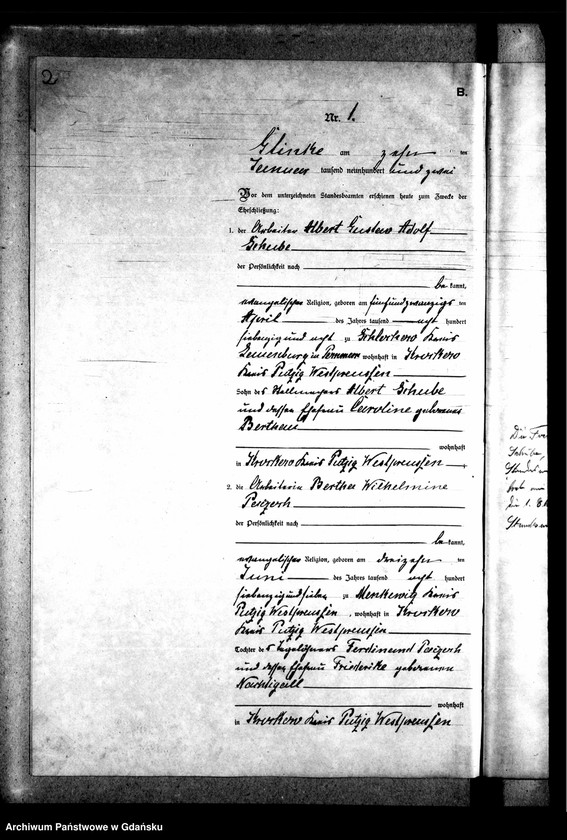 2
B.
Nr. 1.
Glinke am zehn ten
Januar tausend neunhundert und zwei
Vor dem unterzeichneten Standesbeamten erschienen heute zum Zwecke der
Eheschließung:
1. der Arbeiter Albert Gustav Adolf
der Persönlichkeit nach
be kannt,
evangelischer Religion, geboren am fünfundzwanzigs ten
April des Jahres tausend acht hundert
siebenzig und acht zu Kreis
in Pommern wohnhaft in Krockow
Kreis Putzig Westpreussen
Sohn des Stellmachers Albert
und dessen Ehefrau Caroline geborenen
wohnhaft
in Krockow Kreis Putzig Westpreussen
2. die Arbeiterin Bertha Wilhelmine
der Persönlichkeit nach
be kannt,
evangelischer Religion, geboren am dreizehn ten
Juni des Jahres tausend acht hundert
siebenzig und sieben zu Menkewitz Kreis
Putzig Westpreussen, wohnhaft in Krockow
Kreis Putzig Westpreussen
Tochter des Tagelöhners Ferdinand
und dessen Ehefrau Friederike geborenen
Nachtigall
wohnhaft
in Krockow Kreis Putzig Westpreussen
Archiwum Państwowe w Gdańsku